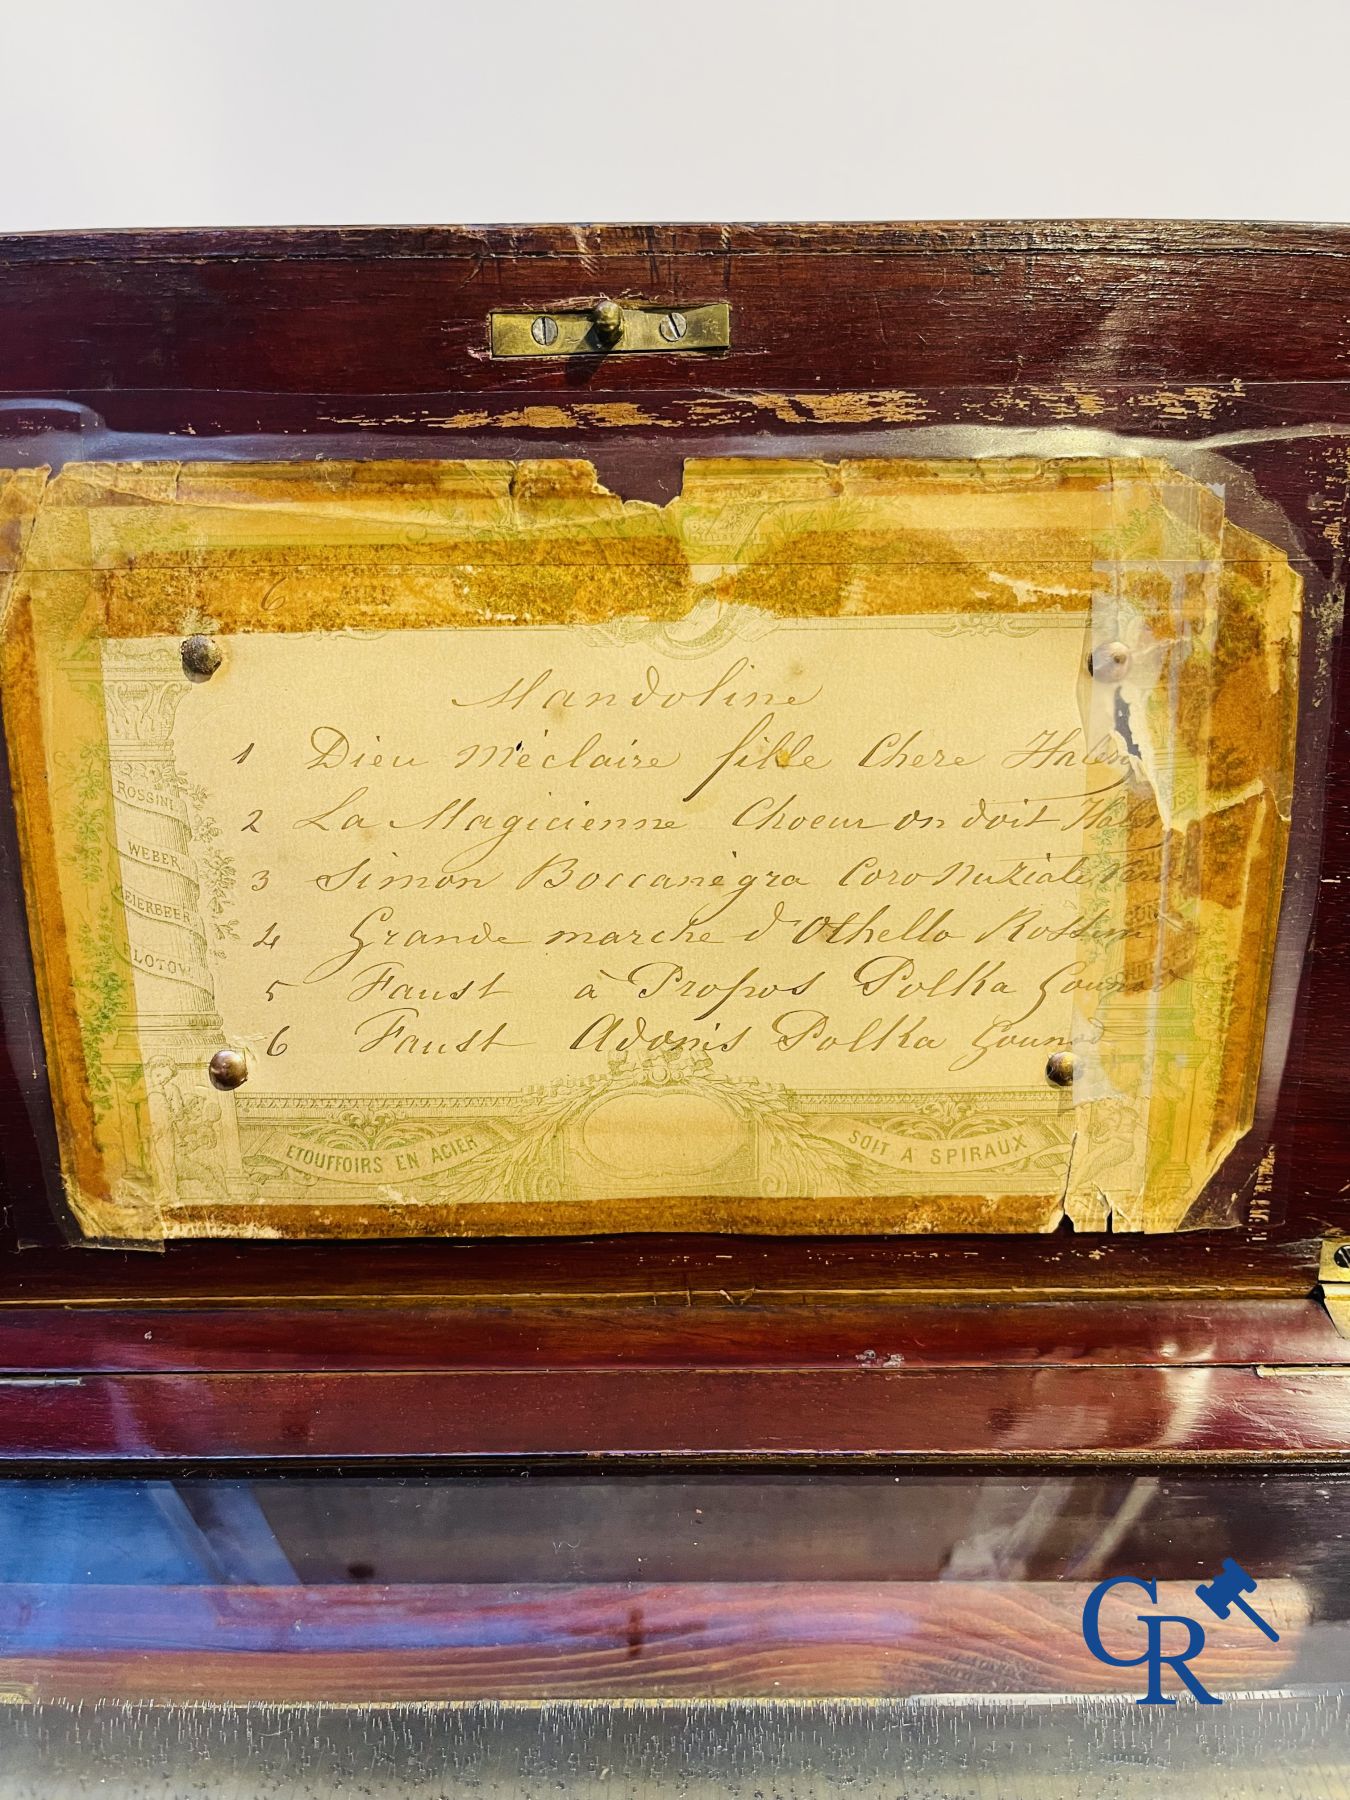 6 AIRS
Mandoline
1 Dieu m'éclaire fille Chere Halevy
2 La Magicienne Choeur on doit Halev
3 Simon Boccanégra Coro Nuziale Verd
4 Grande marche d'Othello Rossini
5 Faust à Propos Polka Gounod
6 Faust Adonis Polka Gounod
ROSSINI
WEBER
MEIERBEER
FLOTOW
ETOUFFOIRS EN ACIER
SOIT A SPIRAUX
CR